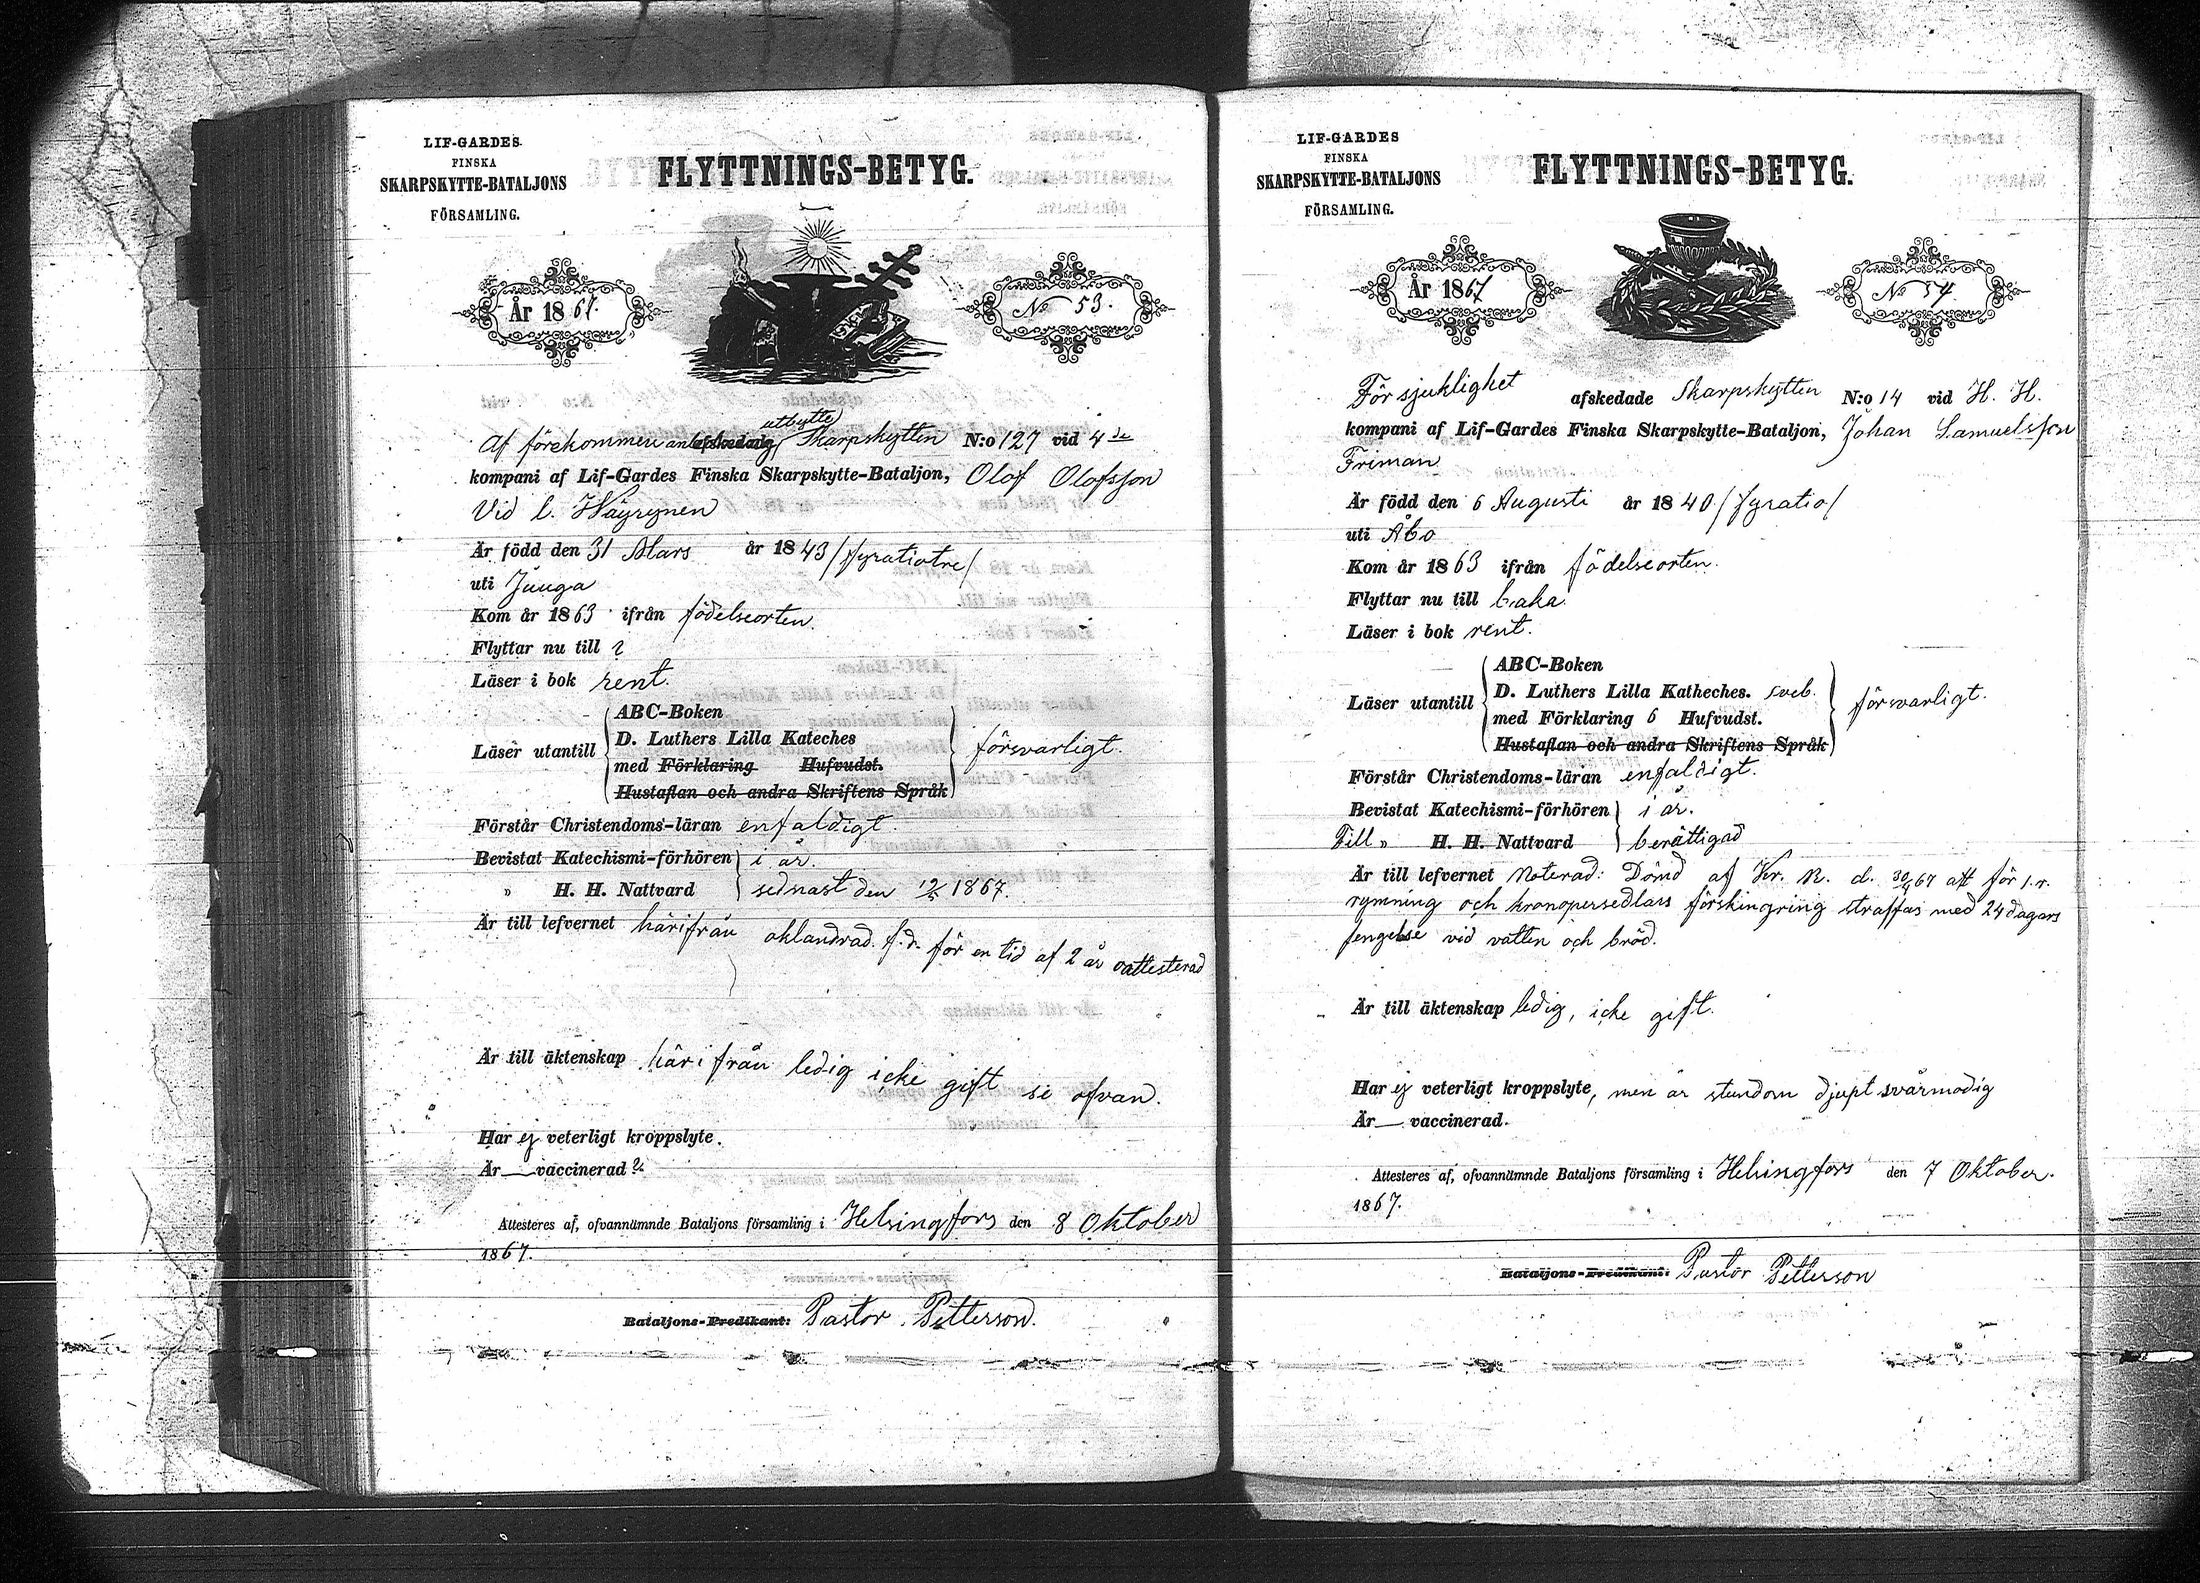 LIF-GARDES
FINSKA
SKARPSKYTTE-BATALJONS
FÖRSAMLING.
FLYTTNINGS-BETYG.
År 1867.
No 53.
Af förekommen anledning utbytte Skarpskytten N:o 127 vid 4de
kompani af Lif-Gardes Finska Skarpskytte-Bataljon, Olof Olofsson
Väyrynen
Är född den 31 Mars år 1843 /fyratiotre/
uti Juuga
Kom år 1863 ifrån födelseorten.
Flyttar nu till ?
Läser i bok rent.
Läser utantill
ABC-Boken
D. Luthers Lilla Kateches
med Förklaring Hufvudst.
Hustaflan och andra Skriftens Språk
försvarligt.
Förstår Christendoms-läran enfaldigt.
Bevistat Katechismi-förhören i år.
" H. H. Nattvard sednast den 19/5 1867.
Är till lefvernet härifrån oklandrad. f.d. för en tid af 2 år oattesterad
Är till äktenskap härifrån ledig icke gift se ofvan.
Har ej veterligt kroppslyte.
Är — vaccinerad ?
Attesteres af, ofvannämnde Bataljons församling i Helsingfors den 8 Oktober
1867.
Bataljons-Predikant: Pastor Petterson.
LIF-GARDES
FINSKA
SKARPSKYTTE-BATALJONS
FÖRSAMLING.
FLYTTNINGS-BETYG.
År 1867
No 54.
För sjuklighet afskedade Skarpskytten N:o 14 vid H. H.
kompani af Lif-Gardes Finska Skarpskytte-Bataljon, Johan Samuelsson
Friman
Är född den 6 Augusti år 1840 /fyratio/
uti Åbo
Kom år 1863 ifrån födelseorten.
Flyttar nu till baka.
Läser i bok rent.
Läser utantill
ABC-Boken
D. Luthers Lilla Katheches.
med Förklaring 6 Hufvudst.
Hustaflan och andra Skriftens Språk
försvarligt.
Förstår Christendoms-läran enfaldigt.
Bevistat Katechismi-förhören i år.
Till " H. H. Nattvard berättigad
Är till lefvernet Noterad: Dömd af Kr. R. d. 30/4 67 att för 1. r.
rymning och kronopersedlars förskingring straffas med 24 dagars
fengelse vid vatten och bröd.
Är till äktenskap ledig, icke gift.
Har ej veterligt kroppslyte, men är stundom djupt svårmodig
Är — vaccinerad.
Attesteres af, ofvannämnde Bataljons församling i Helsingfors den 7 Oktober.
1867.
Bataljons-Predikant: Pastor Petterson